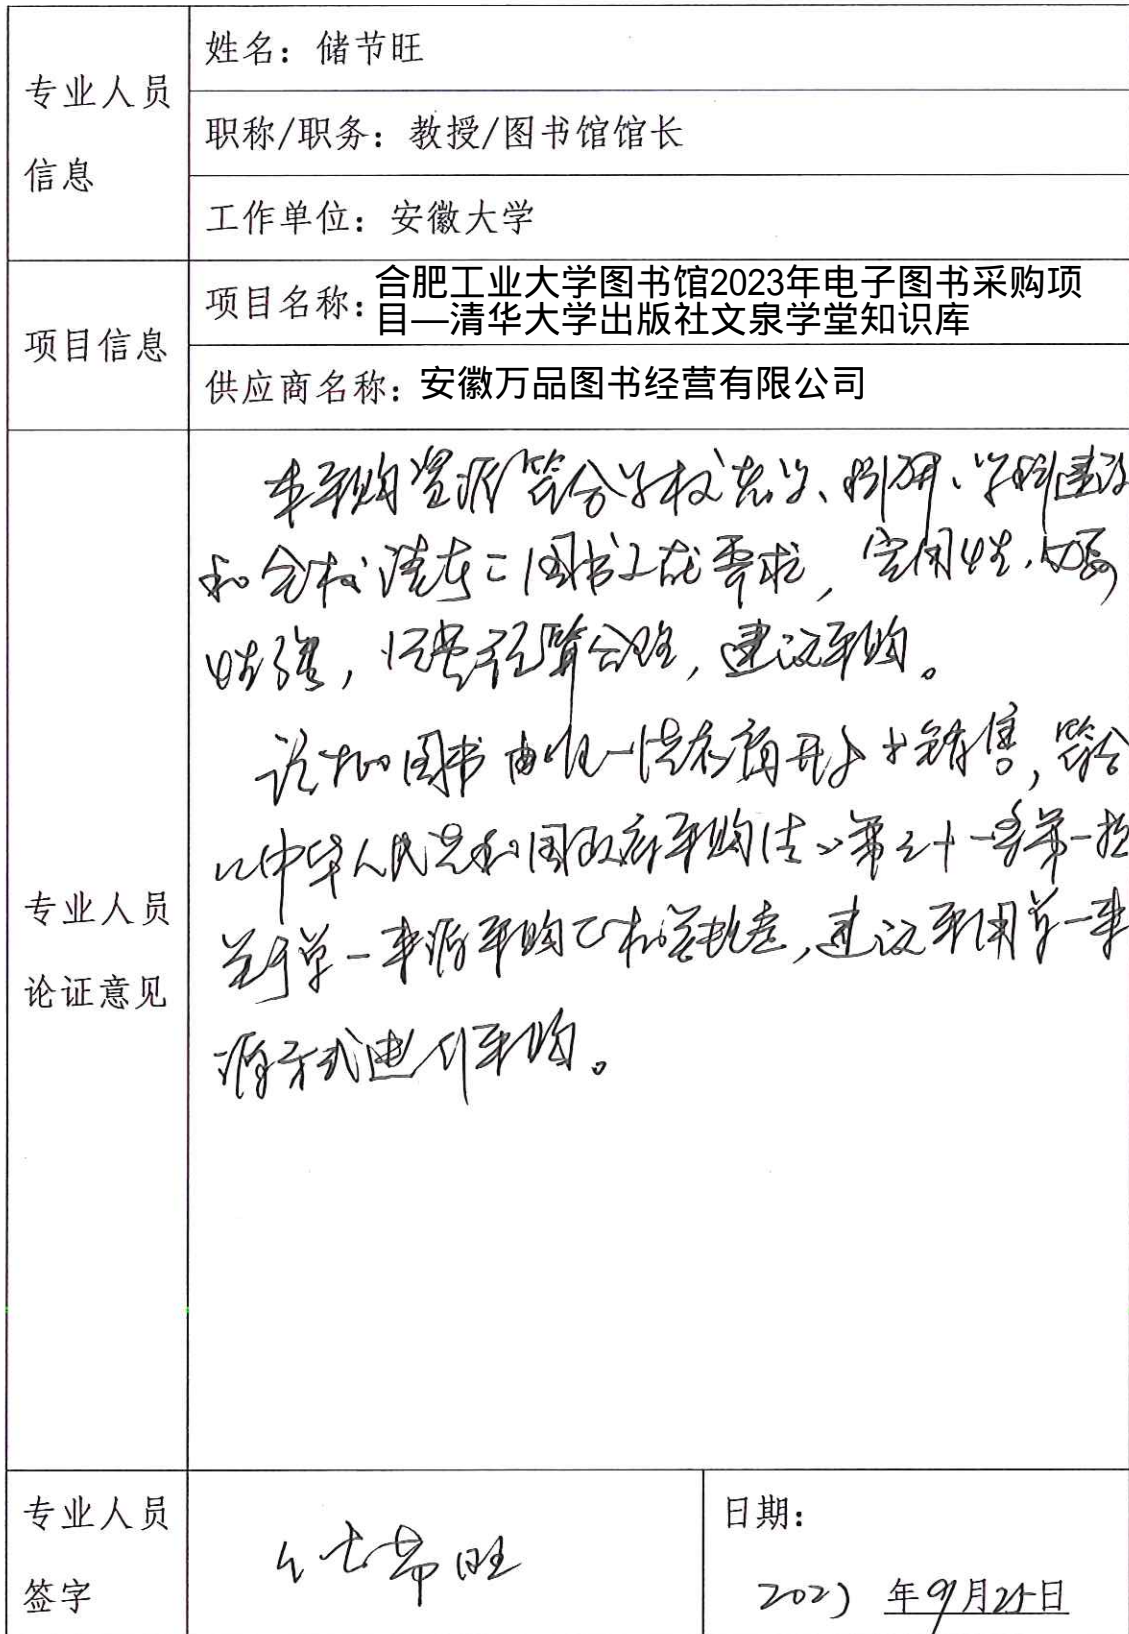 专业人员
信息
姓名：储节旺
职称/职务：教授/图书馆馆长
工作单位：安徽大学
项目信息
项目名称：合肥工业大学图书馆2023年电子图书采购项
目—清华大学出版社文泉学堂知识库
供应商名称：安徽万品图书经营有限公司
专业人员
论证意见
本采购资源符合学校教学、科研、学科建设
和全校读者图书需求，实用性、
性强，经费预算合理，建议采购。
该图书由唯一供应商销售，符合
《中华人民共和国政府采购法》第三十一条第一款
关于单一来源采购，建议采用单一来
源方式进行采购。
专业人员
签字
储节旺
日期：
2023 年9月25日